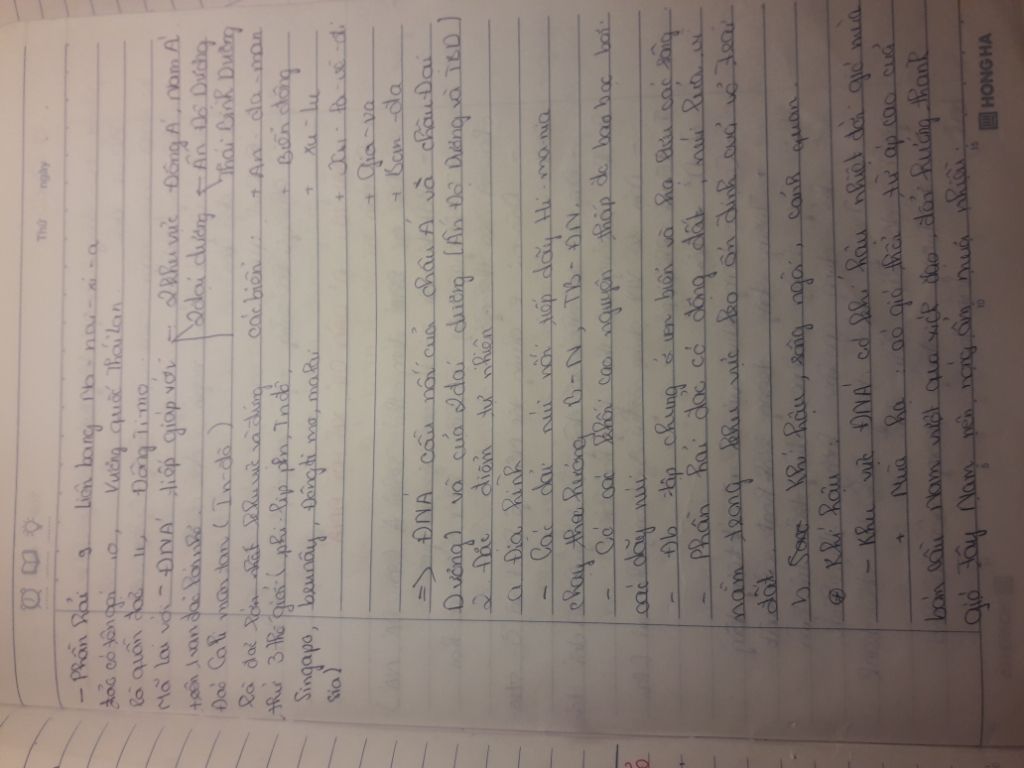 Thứ ngày
- Phần hải 9 liên bang Mi-an-ma
đảo có 10, Vương quốc Thái Lan
là quần đảo 11, Đông Timo
Mã lai và - ĐNA tiếp giáp với 2 khu vực Đông Á, Nam Á
2 đại dương + Ấn Độ Dương
Thái Bình Dương
Đảo Ca li man tan (In-đô)
là đảo lớn khu vực và đứng các biển + An-đa-man
thứ 3 thế giới (phi-lip-pin, Inđô, + Biển đông
Singapo, bruнây, Đôngtimo, malai + xu-lu
sia) + Xu-la-vê-di
+ Gia-va
+ Ban-đa
=> ĐNA cầu nối của châu Á và châu Đại
Dương và của 2 đại dương (Ấn Độ Dương và TBD)
2 Đặc điểm tự nhiên
a, Địa hình
- Các dải núi nối tiếp dãy Hi-ma-lay-a
chạy theo hướng B-N, TB-ĐN.
- Có các khối cao nguyên thấp đc bao bọc bởi
các dãy núi
- Đb tập chung ở ven biển và hạ lưu các sông
- Phần hải đảo có động đất, núi lửa vì
nằm trong khu vực ko ổn định của vỏ trái
đất
b, Khí hậu, sông ngòi, cảnh quan
Khí hậu
- Khu vực ĐNÁ có khí hậu nhiệt đới gió mùa
+ Mùa hạ có gió thổi từ áp cao của
bán cầu Nam vượt qua xích đạo, đổi hướng thành
gió Tây Nam nên nóng, ẩm mưa nhiều.
HONGHA